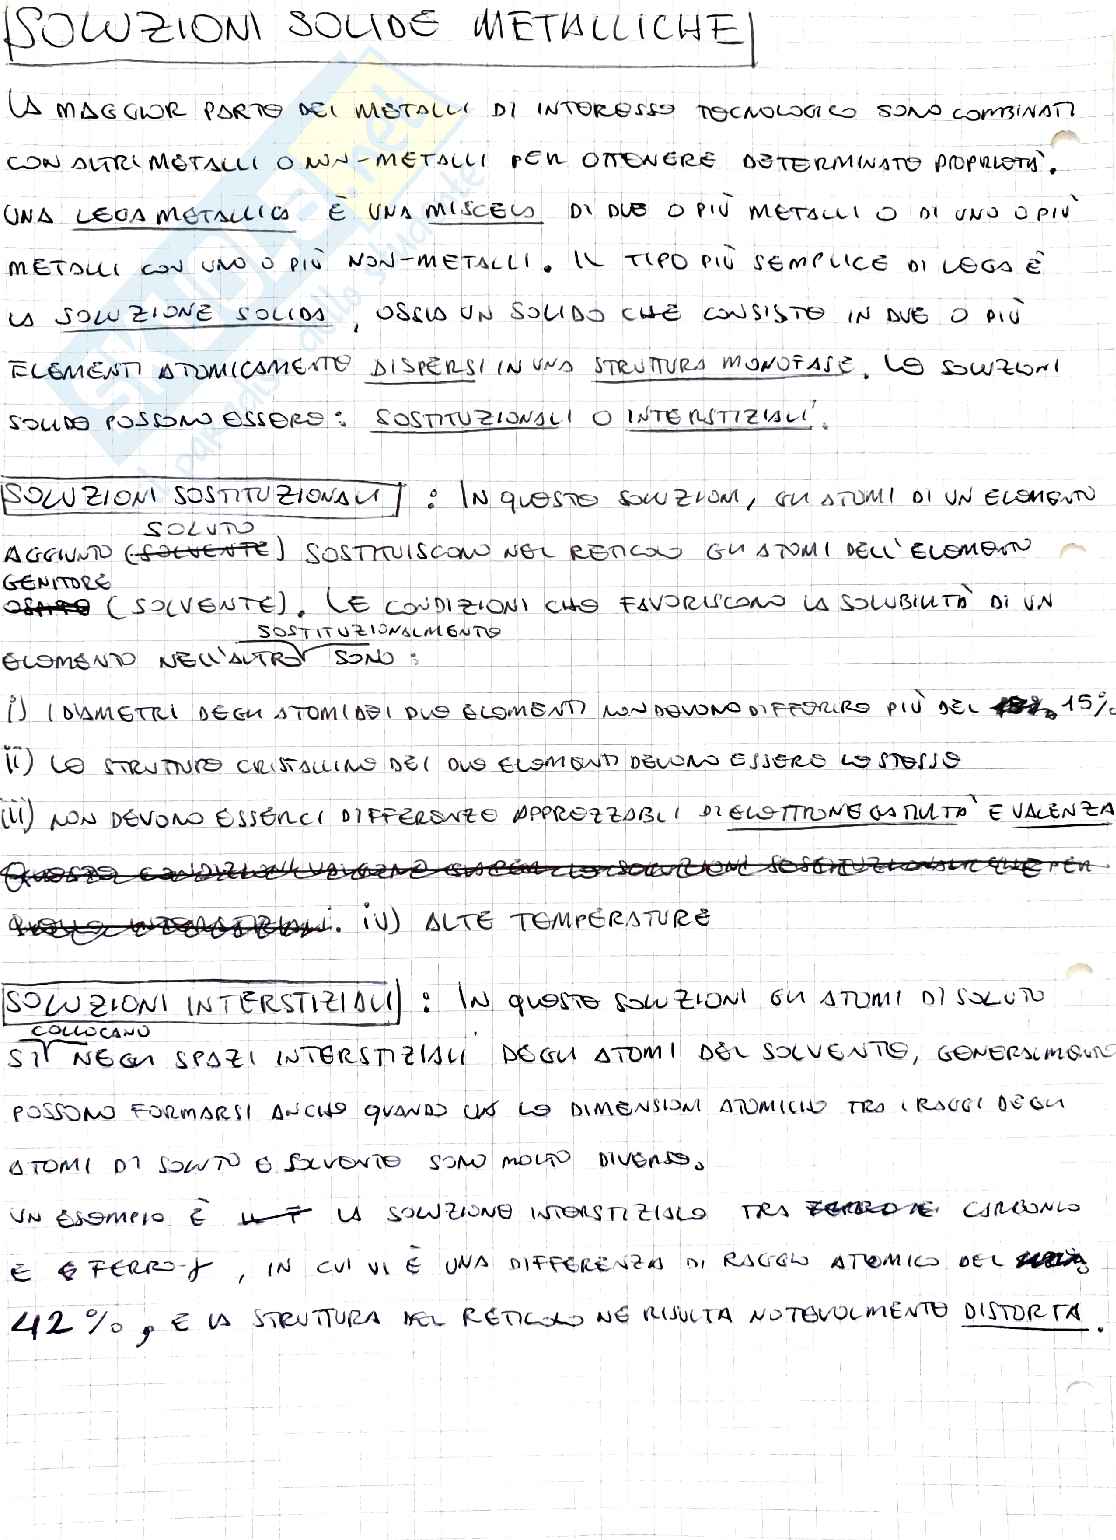 SOLUZIONI SOLIDE METALLICHE
LA MAGGIOR PARTE DEI METALLI DI INTERESSE TECNOLOGICO SONO COMBINATI
CON ALTRI METALLI O NON-METALLI PER OTTENERE DETERMINATE PROPRIETÀ.
UNA LEGA METALLICA È UNA MISCELA DI DUE O PIÙ METALLI O DI UNO O PIÙ
METALLI CON UNO O PIÙ NON-METALLI. IL TIPO PIÙ SEMPLICE DI LEGA È
LA SOLUZIONE SOLIDA, OSSIA UN SOLIDO CHE CONSISTE IN DUE O PIÙ
ELEMENTI ATOMICAMENTE DISPERSI IN UNA STRUTTURA MONOFASE. LE SOLUZIONI
SOLIDE POSSONO ESSERE: SOSTITUZIONALI O INTERSTIZIALI.
SOLUZIONI SOSTITUZIONALI : IN QUESTE SOLUZIONI, GLI ATOMI DI UN ELEMENTO
SOLUTO
AGGIUNTO (SOLVENTE) SOSTITUISCONO NEL RETICOLO GLI ATOMI DELL'ELEMENTO
GENITORE
OSPITE (SOLVENTE). LE CONDIZIONI CHE FAVORISCONO LA SOLUBILITÀ DI UN
SOSTITUZIONALMENTE
ELEMENTO NELL'ALTRO SONO:
i) I DIAMETRI DEGLI ATOMI DEI DUE ELEMENTI NON DEVONO DIFFERIRE PIÙ DEL 15%
ii) LE STRUTTURE CRISTALLINE DEI DUE ELEMENTI DEVONO ESSERE LE STESSE
iii) NON DEVONO ESSERCI DIFFERENZE APPREZZABILI DI ELETTRONEGATIVITÀ E VALENZA
QUESTE CONDIZIONI VALGONO SIA PER LE SOLUZIONI SOSTITUZIONALI CHE PER
QUELLE INTERSTIZIALI. iv) ALTE TEMPERATURE
SOLUZIONI INTERSTIZIALI : IN QUESTE SOLUZIONI GLI ATOMI DI SOLUTO
COLLOCANO
SI NEGLI SPAZI INTERSTIZIALI DEGLI ATOMI DEL SOLVENTE, GENERALMENTE
POSSONO FORMARSI ANCHE QUANDO LE DIMENSIONI ATOMICHE TRA I RAGGI DEGLI
ATOMI DI SOLUTO E SOLVENTE SONO MOLTO DIVERSE.
UN ESEMPIO È LA SOLUZIONE INTERSTIZIALE TRA CARBONIO
E FERRO-γ, IN CUI VI È UNA DIFFERENZA DI RAGGIO ATOMICO DEL
42%, E LA STRUTTURA DEL RETICOLO NE RISULTA NOTEVOLMENTE DISTORTA.